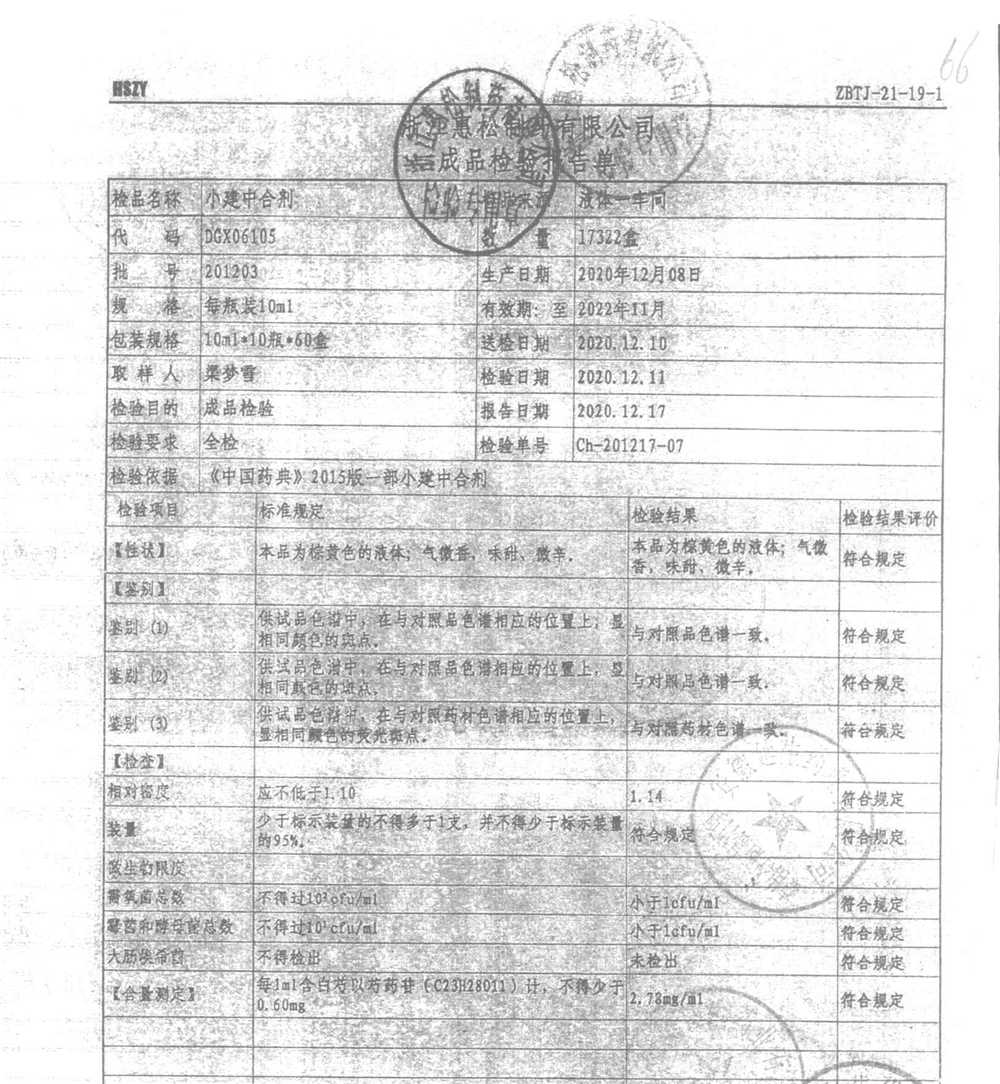 66
HSZY ZBTJ-21-19-1
浙江惠松制药有限公司
成品检验报告单
检品名称 小建中合剂 液体一车间
代 码 DGX06105 数 量 17322盒
批 号 201203 生产日期 2020年12月08日
规 格 每瓶装10ml 有效期: 至 2022年11月
包装规格 10ml*10瓶*60盒 送检日期 2020.12.10
取 样 人 梁梦雪 检验日期 2020.12.11
检验目的 成品检验 报告日期 2020.12.17
检验要求 全检 检验单号 Ch-201217-07
检验依据 《中国药典》2015版一部小建中合剂
检验项目 标准规定 检验结果 检验结果评价
【性状】 本品为棕黄色的液体；气微香，味甜、微辛。 本品为棕黄色的液体；气微
香，味甜、微辛。 符合规定
【鉴别】
鉴别 (1) 供试品色谱中，在与对照品色谱相应的位置上，显
相同颜色的斑点。 与对照品色谱一致。 符合规定
鉴别 (2) 供试品色谱中，在与对照品色谱相应的位置上，显
相同颜色的斑点。 与对照品色谱一致。 符合规定
鉴别 (3) 供试品色谱中，在与对照药材色谱相应的位置上，
显相同颜色的荧光斑点。 与对照药材色谱一致。 符合规定
【检查】
相对密度 应不低于1.10 1.14 符合规定
装量 少于标示装量的不得多于1支，并不得少于标示装量
的95%。 符合规定 符合规定
微生物限度
需氧菌总数 不得过10²cfu/ml 小于1cfu/ml 符合规定
霉菌和酵母菌总数 不得过10¹cfu/ml 小于1cfu/ml 符合规定
大肠埃希菌 不得检出 未检出 符合规定
【含量测定】 每1ml含白芍以芍药苷（C23H28O11）计，不得少于
0.60mg 2.78mg/ml 符合规定